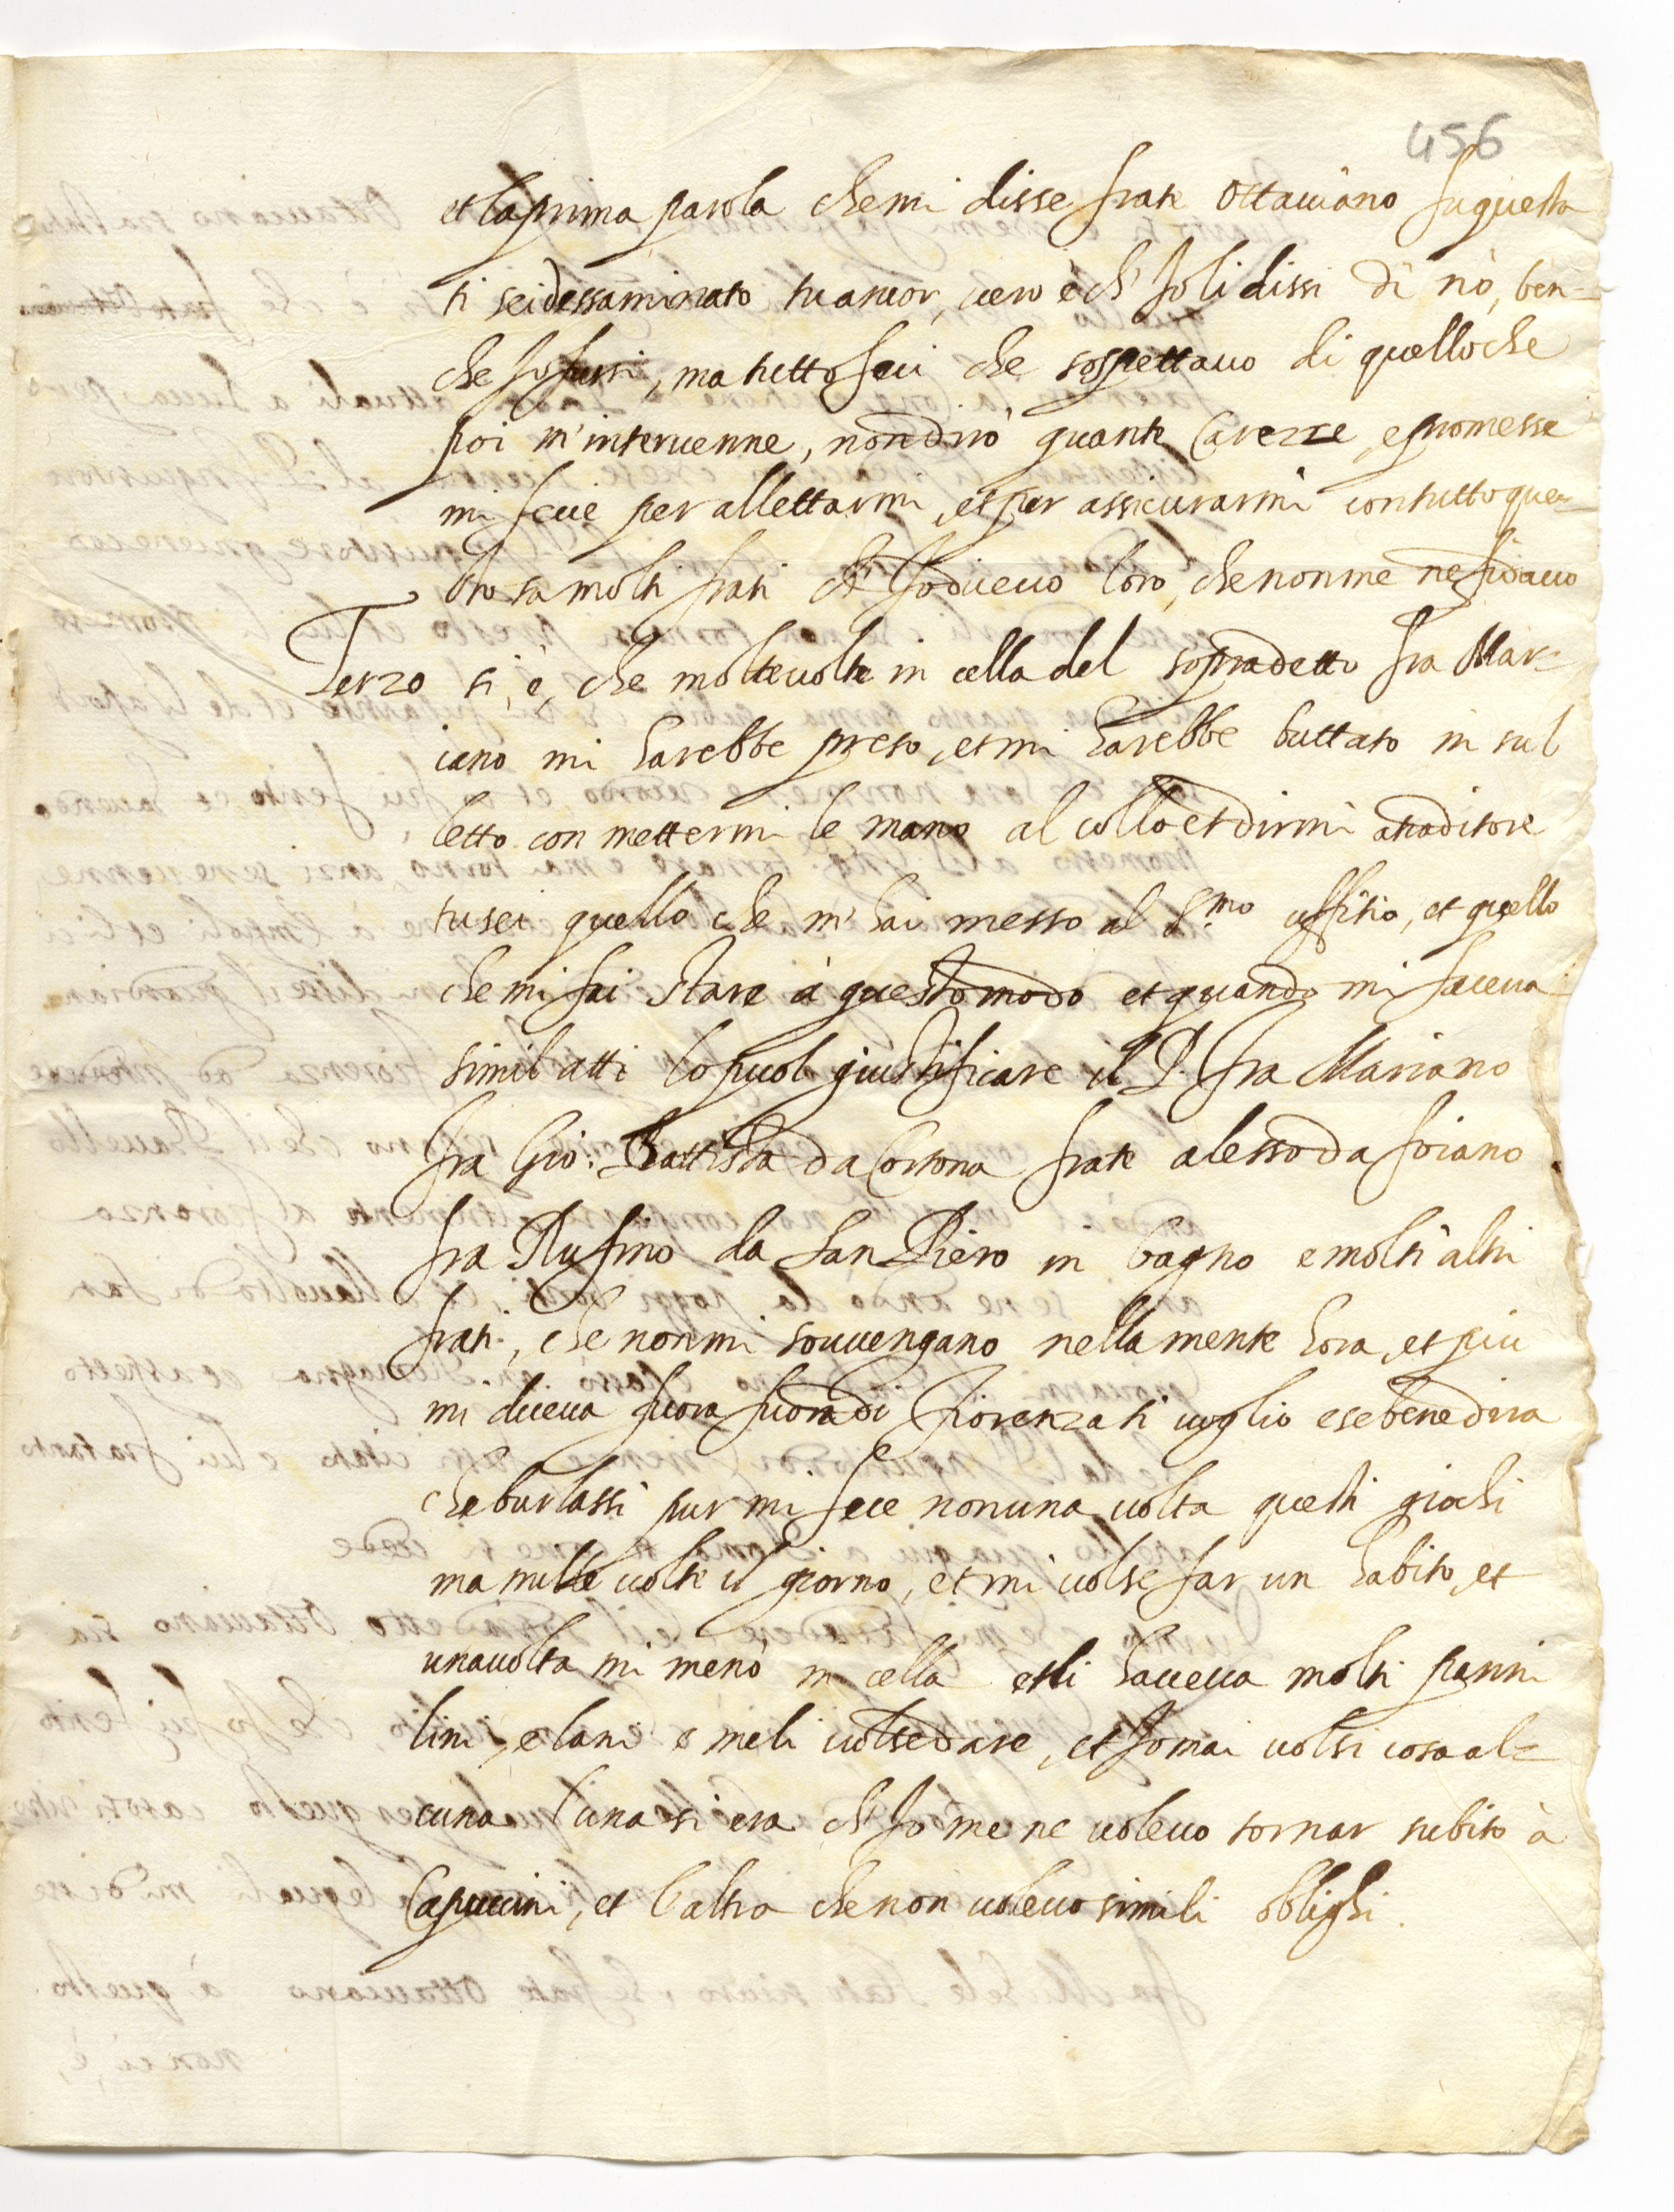 456
et la prima parola che mi disse frate Ottaviano fu questa
ti sei dessaminato tu ancor, vero è ch' Io li dissi di nò, ben=
che Io fussi, ma tutto feci che sospettavo di quello che
poi m'intervenne, non dirò quante Carezze, e promesse
mi fece per allettarmi, et per assicurarmi con tutto que=
sto sa molti frati ch' Io dicevo loro, che non me ne fidavo
Terzo si, è, che molte volte in cella del sopradetto fra Mar=
iano mi harebbe preso, et mi harebbe buttato in sul
letto con mettermi le mano al collo et dirmi a traditore
tu sei quello che m' hai messo al S.mo uffitio, et quello
che mi fai stare à questo modo et quando mi faceva
simil atti lo puol giustificare il P. fra Mariano
fra Gio: Battista da Cortona frate alesso da foiano
fra Rufino da San Piero in bagno e molti altri
frati, che non mi souvengano nella mente hora, et piu
mi diceva fuora fuora di Fiorenza ti voglio e se bene dira
che burlassi pur mi fece non una volta questi giochi
ma mille volte il giorno, et mi volse far un habito, et
una volta mi menò in cella et li haveva molti panni
lini, e lani e me li volse dare, et Io mai volsi cosa al=
cuna l'una si era ch' Io me ne volevo tornar subito à
Capuccini, et l'altra che non volevo simili oblighi.